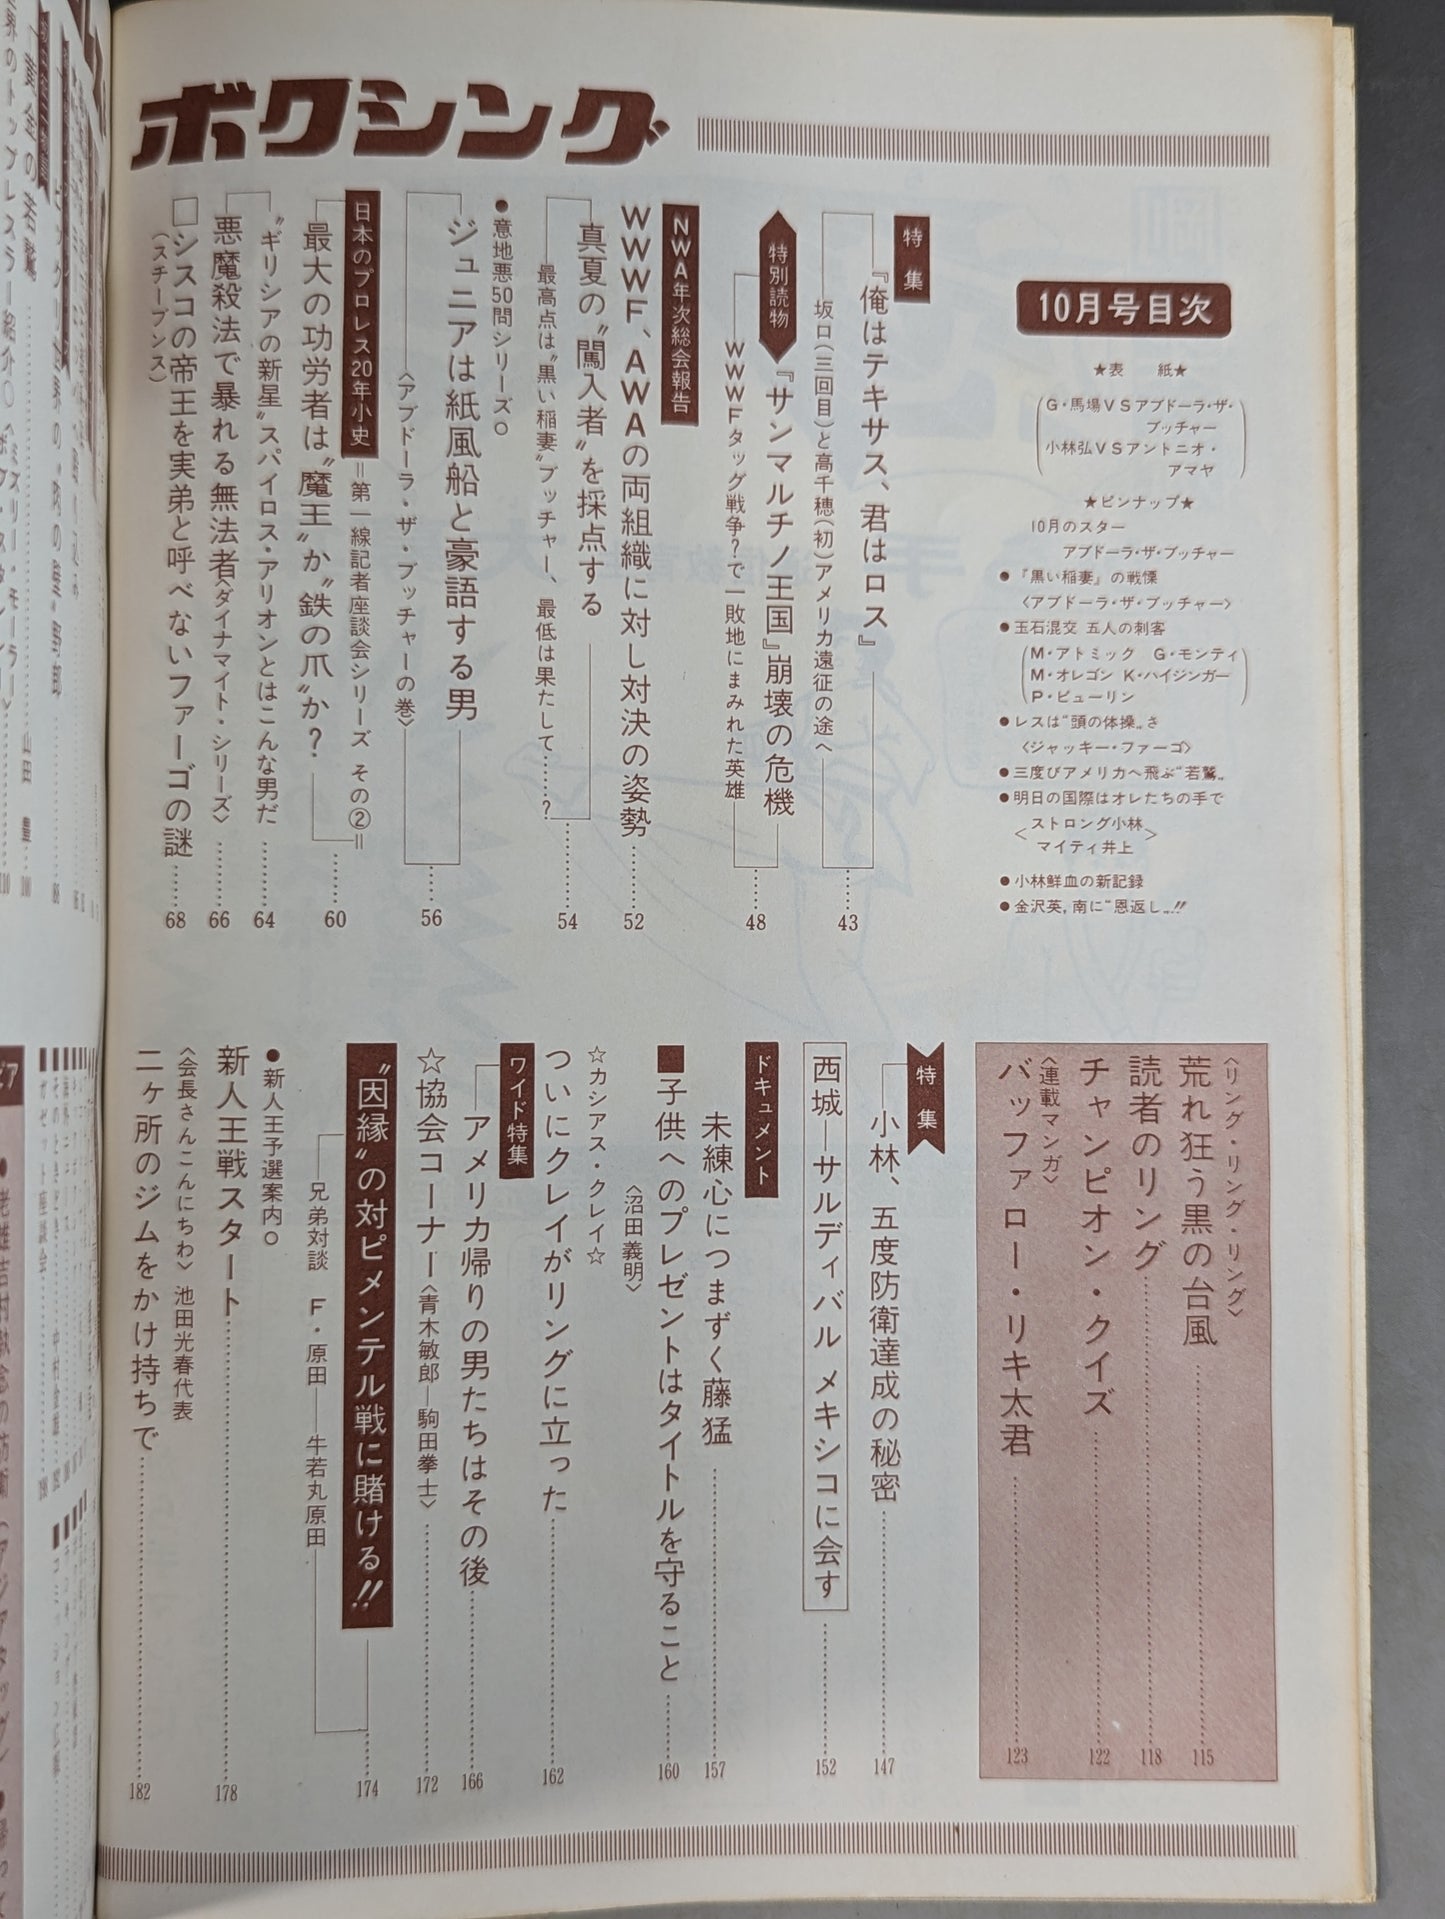 ボクシング
10月号目次
★表　紙★
G・馬場VSアブドーラ・ザ・
ブッチャー
小林弘VSアントニオ・
アマヤ
★ピンナップ★
10月のスター
アブドーラ・ザ・ブッチャー
●『黒い稲妻』の戦慄
〈アブドーラ・ザ・ブッチャー〉
●玉石混交 五人の刺客
M・アトミック　G・モンティ
M・オレゴン K・ハイジンガー
P・ビューリン
●レスは“頭の体操„さ
〈ジャッキー・ファーゴ〉
●三度びアメリカへ飛ぶ“若鷲„
●明日の国際はオレたちの手で
〈ストロング小林
マイティ井上〉
●小林鮮血の新記録
●金沢英，南に“恩返し„!!
特集
『俺はテキサス、君はロス』
坂口(三回目)と高千穂(初)アメリカ遠征の途へ……43
特別読物
『サンマルチノ王国』崩壊の危機
WWWFタッグ戦争?で一敗地にまみれた英雄……48
NWA年次総会報告
WWWF、AWAの両組織に対し対決の姿勢……52
真夏の〝闖入者〟を採点する
最高点は〝黒い稲妻〟ブッチャー、最低は果たして……?……54
●意地悪50問シリーズ○
ジュニアは紙風船と豪語する男
〈アブドーラ・ザ・ブッチャーの巻〉……56
日本のプロレス20年小史
＝第一線記者座談会シリーズ その②＝
最大の功労者は〝魔王〟か〝鉄の爪〟か?……60
〝ギリシアの新星〟スパイロス・アリオンとはこんな男だ……64
悪魔殺法で暴れる無法者〈ダイナマイト・シリーズ〉……66
□シスコの帝王を実弟と呼べないファーゴの謎……68
(スチーブンス)
〈リング・リング・リング〉
荒れ狂う黒の台風……115
読者のリング……118
チャンピオン・クイズ……122
〈連載マンガ〉
バッファロー・リキ太君……123
特集
小林、五度防衛達成の秘密……147
西城―サルディバル メキシコに会す……152
ドキュメント
未練心につまずく藤猛……157
■子供へのプレゼントはタイトルを守ること……160
〈沼田義明〉
☆カシアス・クレイ☆
ついにクレイがリングに立った……162
ワイド特集
アメリカ帰りの男たちはその後……166
☆協会コーナー〈青木敏郎―駒田拳士〉……172
〝因縁〟の対ピメンテル戦に賭ける!!
兄弟対談　F・原田――牛若丸原田……174
●新人王予選案内○
新人王戦スタート……178
〈会長さんこんにちわ〉池田光春代表
二ヶ所のジムをかけ持ちで……182